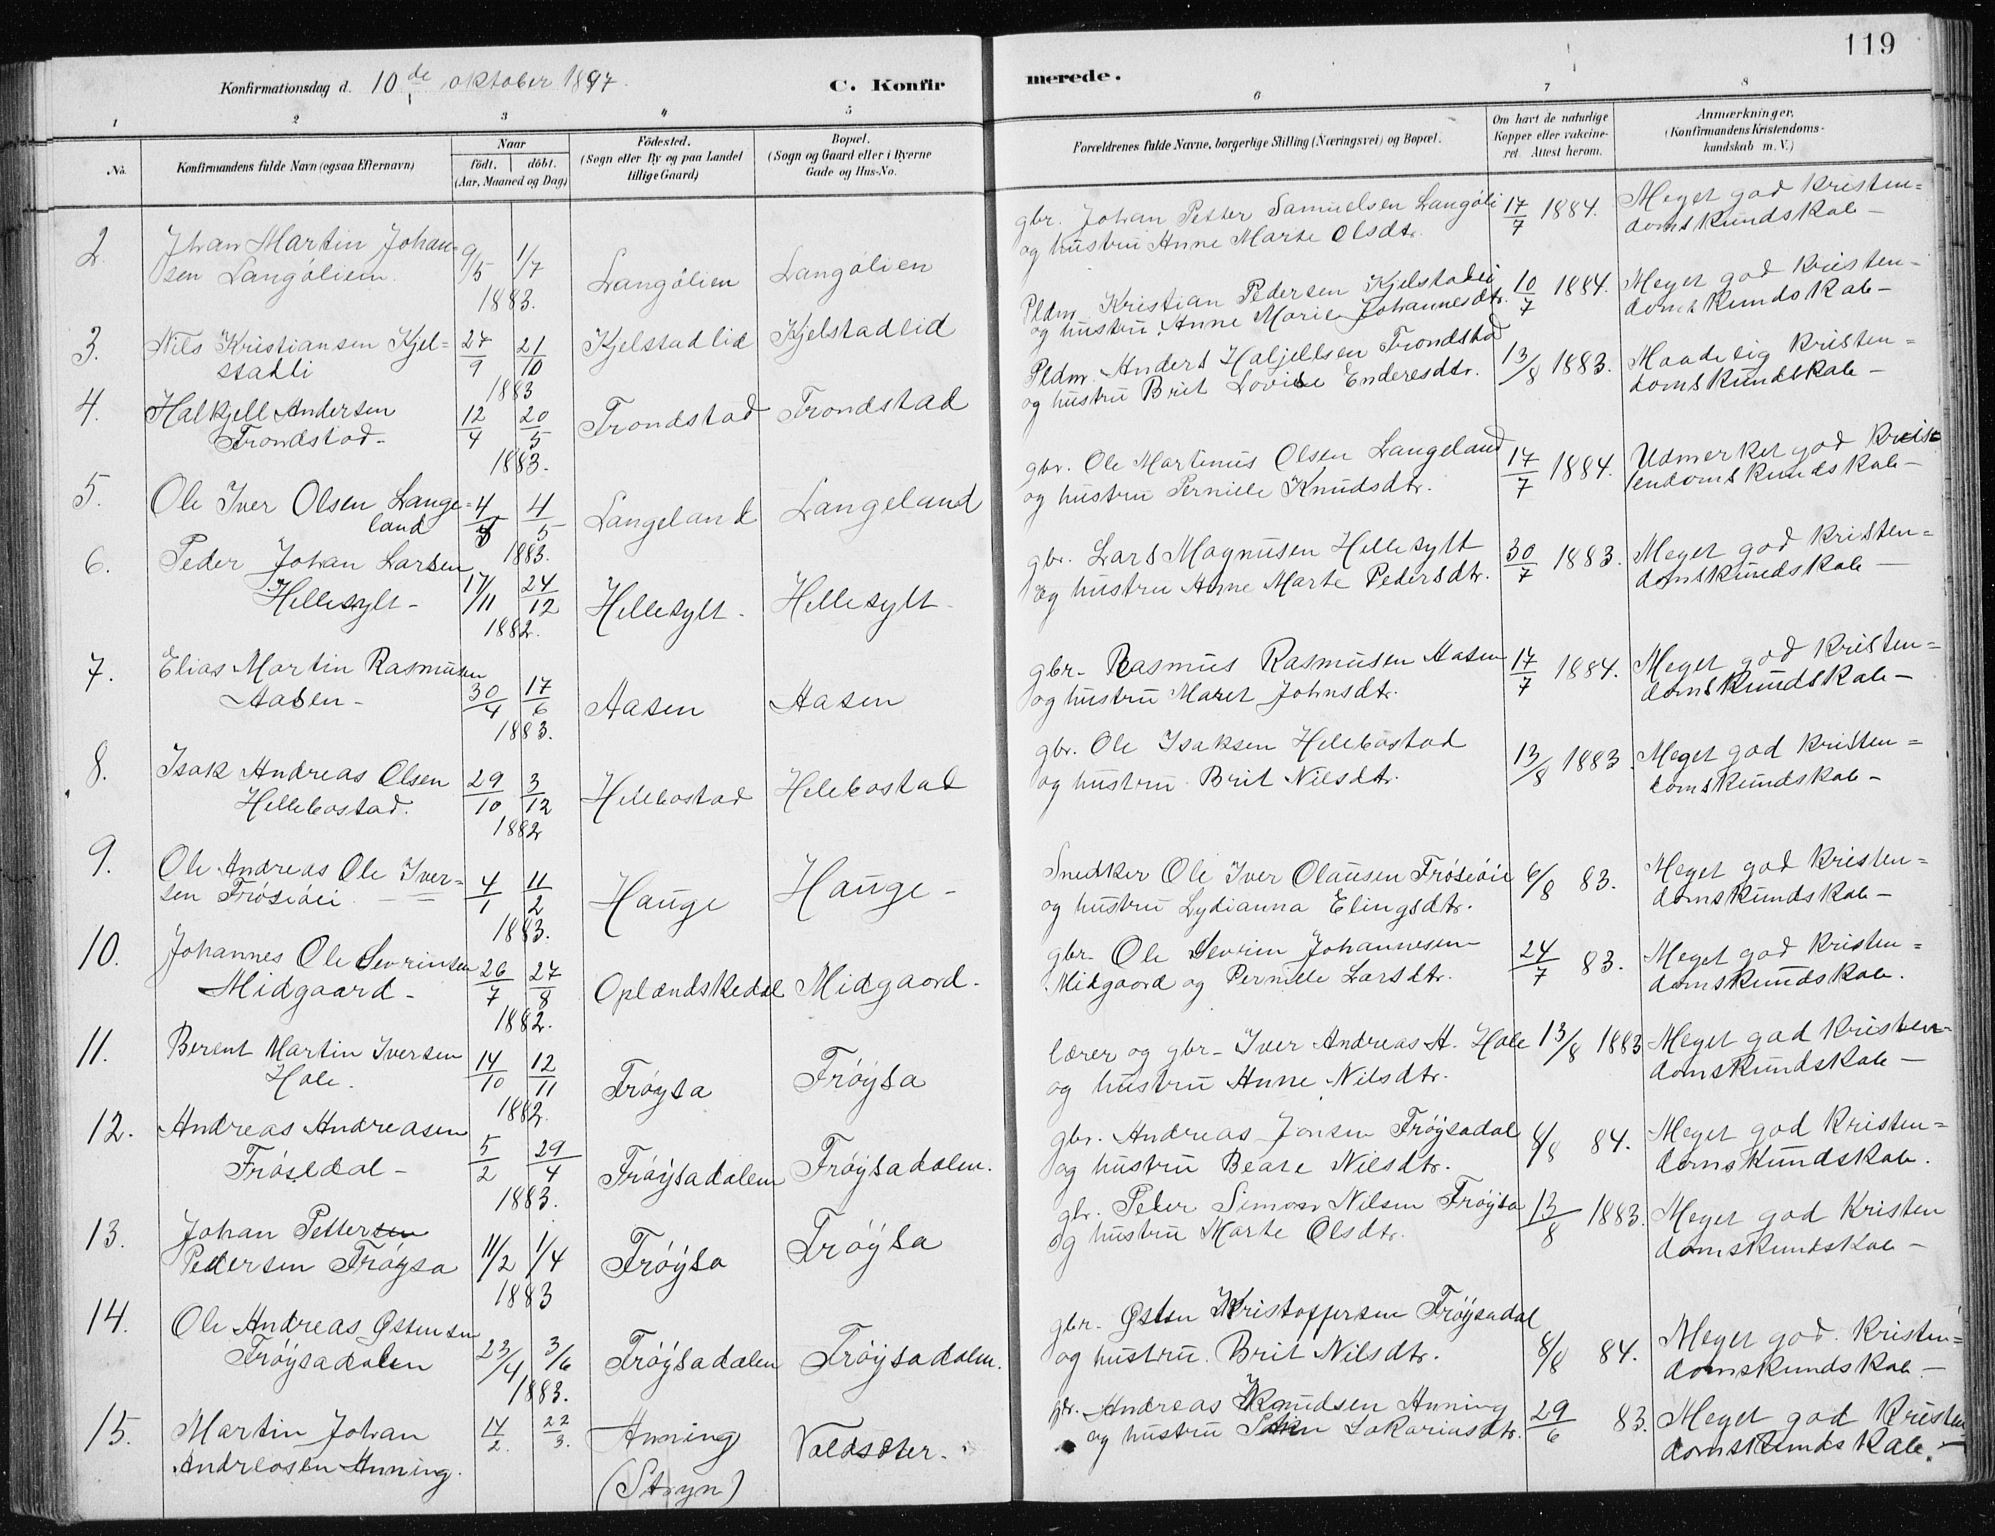 119
Konfirmationsdag d. 10de oktober 1897.
C. Konfirmerede.
1 2 3 4 5 6 7 8
No. Konfirmandens fulde Navn (ogsaa Efternavn)
Naar födt. döbt. (Aar, Maaned og Dag)
Födested. (Sogn eller By og paa Landet tillige Gaard)
Bopæl. (Sogn og Gaard eller i Byerne Gade og Hus-No.
Forældrenes fulde Navne, borgerlige Stilling (Næringsvei) og Bopæl.
Om havt de naturlige Kopper eller vakcineret. Attest herom.
Anmærkninger. (Konfirmandens Kristendomskundskab m. V.)
2. Johan Martin Johan= 9/5 1/7 Langölien Langölien gbr. Johan Petter Samuelsen Langöli 17/7 1884. Meget god Kristen=
sen Langölien. 1883. og hustru Anne Marte Olsdtr. domskundskab –
3. Nils Kristiansen Kjel= 27/9 21/10 Kjelstadlid Kjelstadlid Pldm. Kristian Pedersen Kjelstadli 10/7 1884. Meget god Kristen=
stadli 1883 og hustru Anne Marie Johannesdtr. domskundskab –
4. Halkjell Andersen 12/4 20/5 Trondstad Trondstad Pldm. Anders Haljellsen Trondstad 13/8 1883. Maadelig Kristen=
Trondstad – 1883. og hustru Brit Lovise Enderesdtr. domskundskab –
5. Ole Iver Olsen Lange= 4 4/5 Langeland Langeland gbr. Ole Martinus Olsen Langeland 17/7 1884. Udmerket god Krist=
land 1883. og hustru Pernille Knudsdtr. endomskundskab –
6. Peder Johan Larsen 17/11 24/12 Hellesylt – Hellesylt – gbr. Lars Magnusen Hellesylt 30/7 1883. Meget god Kristen=
Hellesylt – 1882. og hustru Anne Marte Pedersdtr. domskundskab –
7. Elias Martin Rasmusen 30/4 17/6 Aasen Aasen gbr. Rasmus Rasmusen Aasen 17/7 1884. Meget god Kristen=
Aasen – 1883. og hustru Maret Johnsdtr. domskundskab –
8. Isak Andreas Olsen 29/10 3/12 Hellebostad Hellebostad gbr. Ole Isaksen Hellebostad 13/8 1883. Meget god Kristen=
Hellebostad. 1882 og hustru Brit Nilsdtr. domskundskab –
9. Ole Andreas Ole Iver= 4/1 11/2 Hauge Hauge – Snedker Ole Iver Olausen Frösiöii 6/8 83. Meget god Kristen=
sen Frösiöii 1883. og hustru Lydianna Elingsdtr. domskundskab –
10. Johannes Ole Sevrinsen 26/7 27/8 Oplændskedal Midgaard – gbr. Ole Sevrin Johannesen 24/7 83. Meget god Kristen=
Midgaard – 1882. Midgaard og Pernille Larsdtr. domskundskab.
11. Berent Martin Iversen 14/10 12/11 Fröysa Fröysa lærer og gbr – Iver Andreas A. Hole 13/8 1883 Meget god Kristen
Hole. 1882. og hustru Anne Nilsdtr. domskundskab –
12. Andreas Andreasen 5/2 29/4 Fröysadalen Fröysadalen. gbr. Andreas Jonsen Fröysadal 8/8 84. Meget god Kristen=
Frösedal – 1883. og hustru Beate Nilsdtr. domskundskab.
13. Johan Pettersen 11/2 1/4 Fröysa Fröysa gbr. Peter Simon Nilsen Fröysa 13/8 1883. Meget god Kristen
Pedersen Fröysa 1883 og hustru Marte Olsdtr. domskundskab –
14. Ole Andreas Østensen 23/4 3/6 Fröysadalen Fröysadalen. gbr. Østen Kristoffersen Fröysadal 8/8 84. Meget god Kristen=
Fröysadalen 1883. og hustru Brit Nilsdtr. domskundskab –
15. Martin Johan 14/2. 22/3. Anning Voldsæter. gbr. Andreas Knudsen Anning 29/6 83. Meget god Kristen
Andreasen Anning. (Stryn) og hustru Sakariasdtr. domskundskab. –